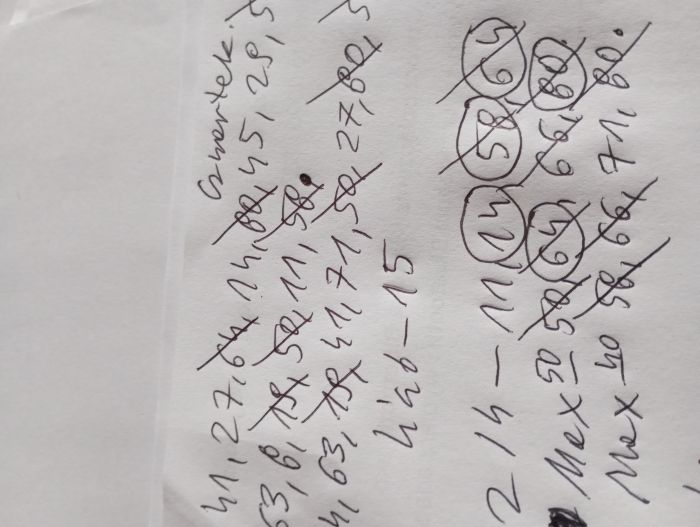 Czwartek.
41, 27, 64, 14, 80, 45, 29, 5
63, 6, 19, 50, 11, 58.
4, 63, 19, 41, 71, 50, 27, 80, 5
háb-15
214-11, 14, 58, 64
Max 50 50, 64, 66, 80,
Max 40 58, 66, 71, 80.